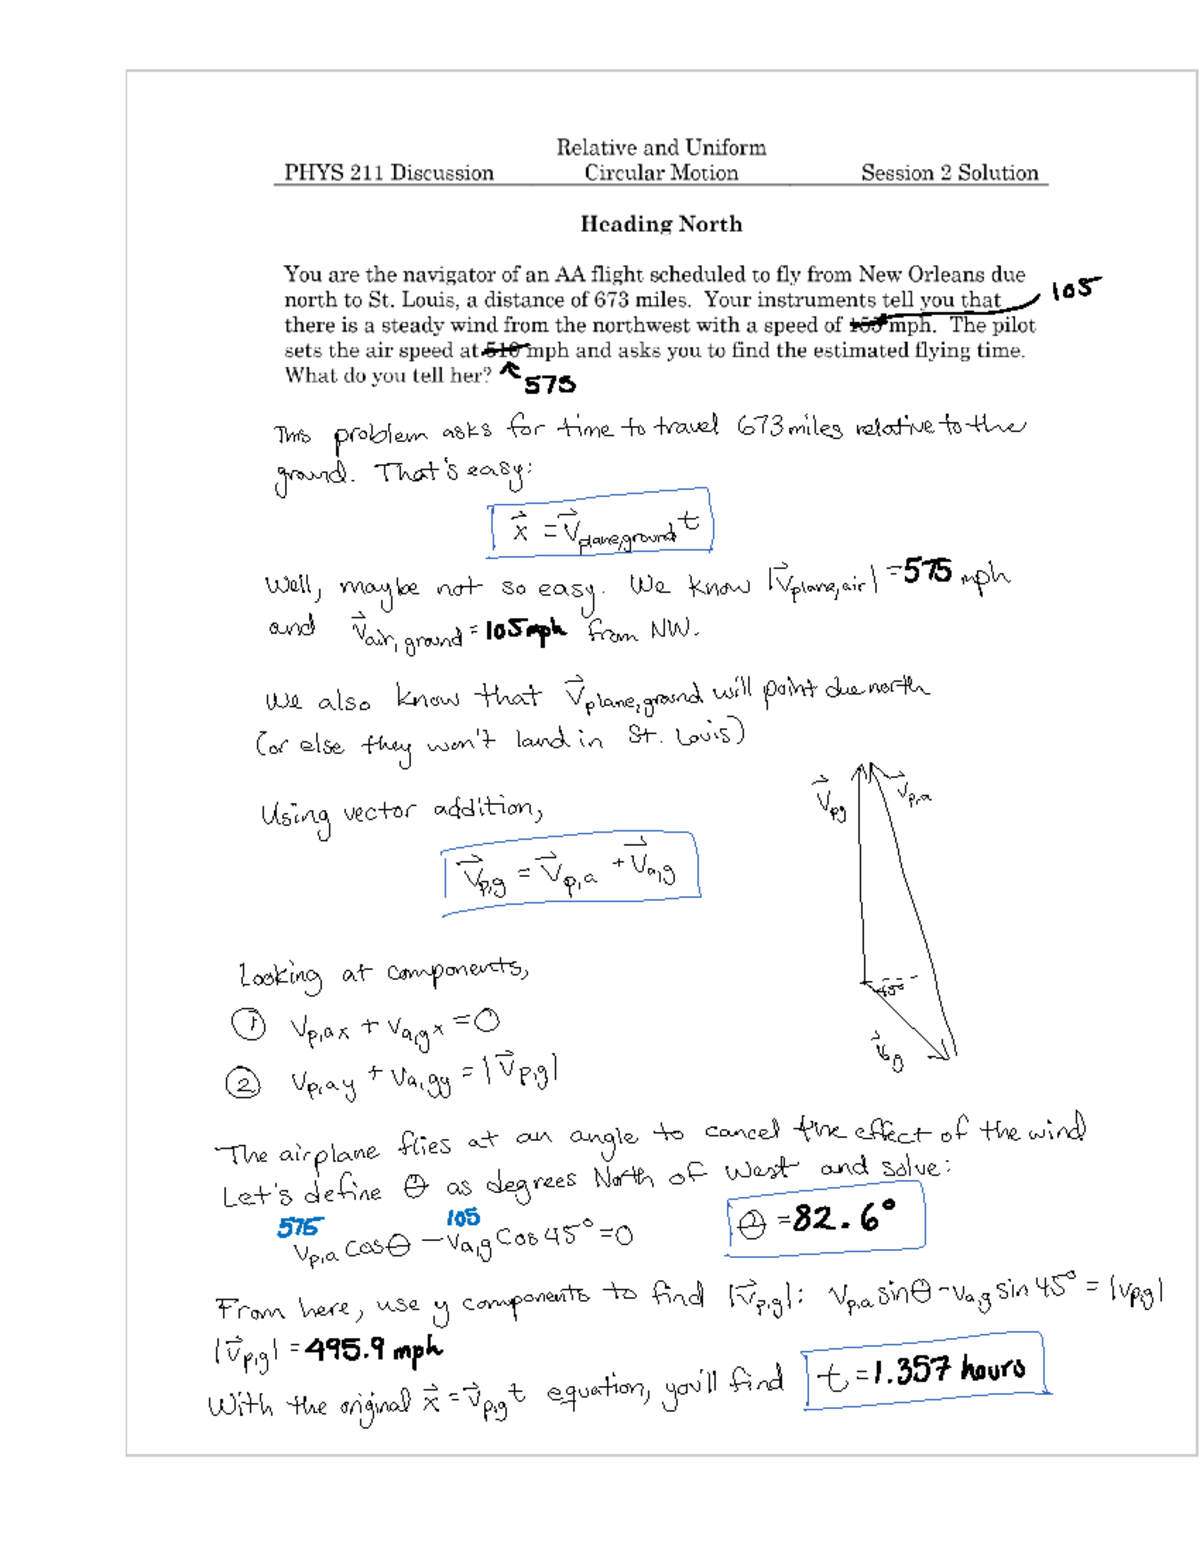 Relative and Uniform
PHYS 211 Discussion Circular Motion Session 2 Solution
Heading North
You are the navigator of an AA flight scheduled to fly from New Orleans due
north to St. Louis, a distance of 673 miles. Your instruments tell you that 105
there is a steady wind from the northwest with a speed of mph. The pilot
sets the air speed at 510 mph and asks you to find the estimated flying time.
What do you tell her? 575
This problem asks for time to travel 673 miles relative to the
ground. That's easy:
x⃗ = v⃗plane,ground t
Well, maybe not so easy. We know |v⃗plane,air| = 575 mph
and v⃗air, ground = 105 mph from NW.
We also know that v⃗plane,ground will point due north
(or else they won't land in St. Louis)
v⃗pg v⃗p,a
Using vector addition,
v⃗p,g = v⃗p,a + v⃗a,g
Looking at components,
45°
① vp,ax + va,gx = 0
v⃗a,g
② vp,ay + va,gy = |v⃗p,g|
The airplane flies at an angle to cancel the effect of the wind
Let's define θ as degrees North of West and solve:
575 105
vp,a cosθ - va,g cos 45° = 0 θ = 82.6°
From here, use y components to find |v⃗p,g|: vp,a sinθ - va,g sin 45° = |vp,g|
|v⃗p,g| = 495.9 mph
With the original x⃗ = v⃗p,g t equation, you'll find t = 1.357 hours